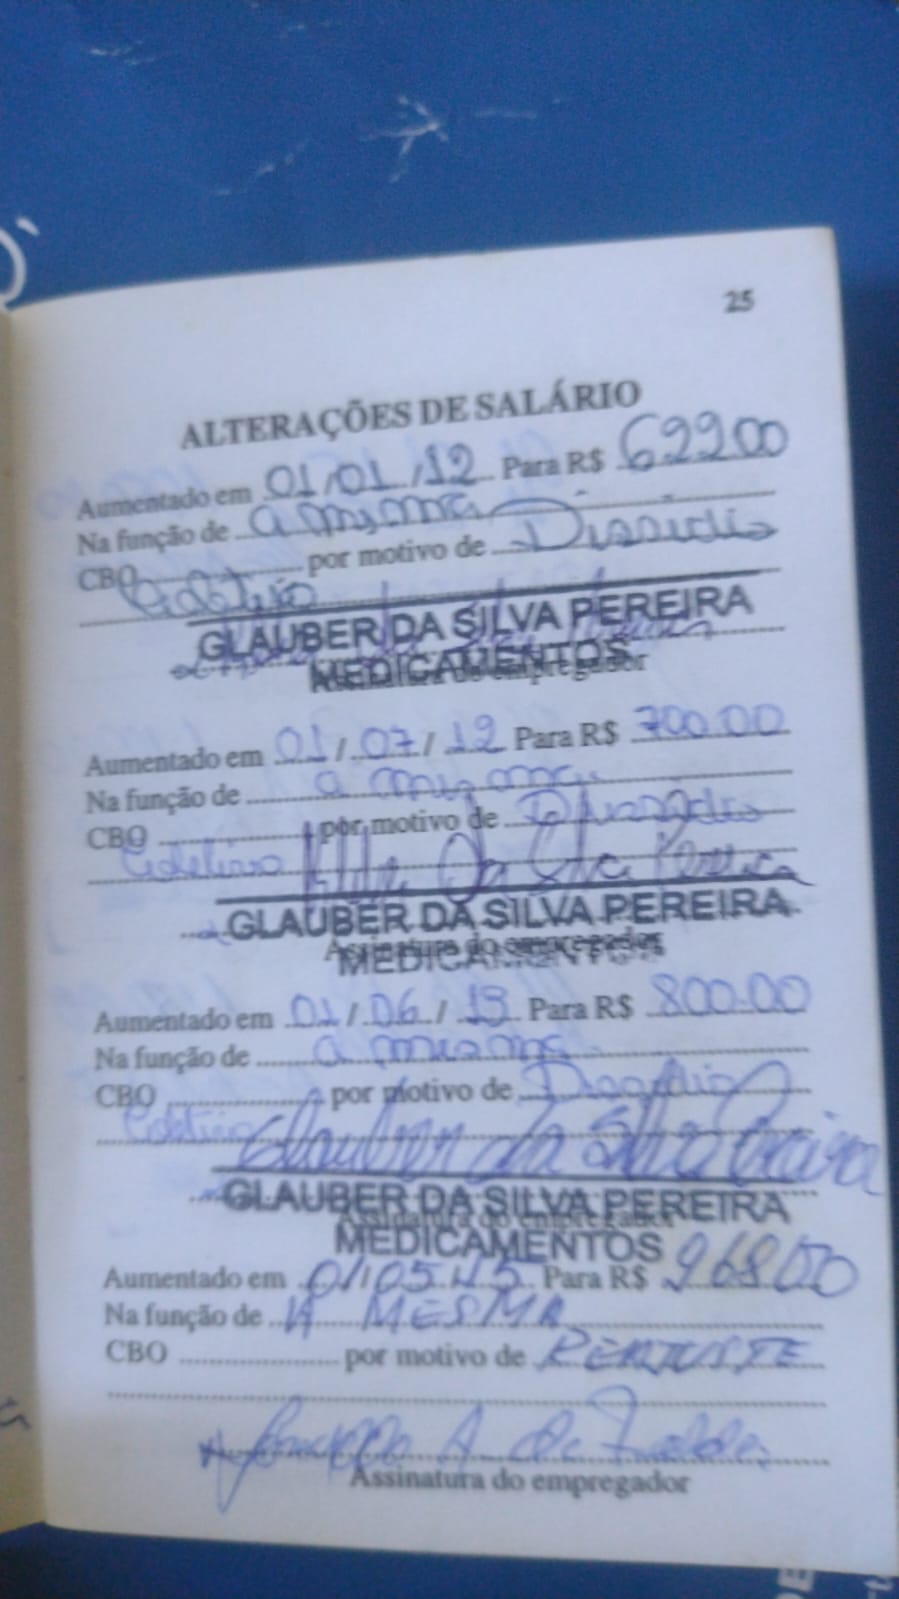 25
ALTERAÇÕES DE SALÁRIO
Aumentado em 01/01/12 Para R$ 622,00
Na função de a mesma
CBO por motivo de Dissídio
Coletivo
GLAUBER DA SILVA PEREIRA
MEDICAMENTOS
Assinatura do empregador
Aumentado em 01/07/12 Para R$ 700.00
Na função de a mesma
CBO por motivo de Dissídio
Coletivo da Silva Pereira
GLAUBER DA SILVA PEREIRA
Assinatura do empregador
MEDICAMENTOS
Aumentado em 01/06/13 Para R$ 800.00
Na função de a mesma
CBO por motivo de Dissídio
Coletivo Glauber da Silva Pereira
GLAUBER DA SILVA PEREIRA
Assinatura do empregador
MEDICAMENTOS
Aumentado em 01/05/15 Para R$ 968,00
Na função de A MESMA
CBO por motivo de REAJUSTE
A de
Assinatura do empregador